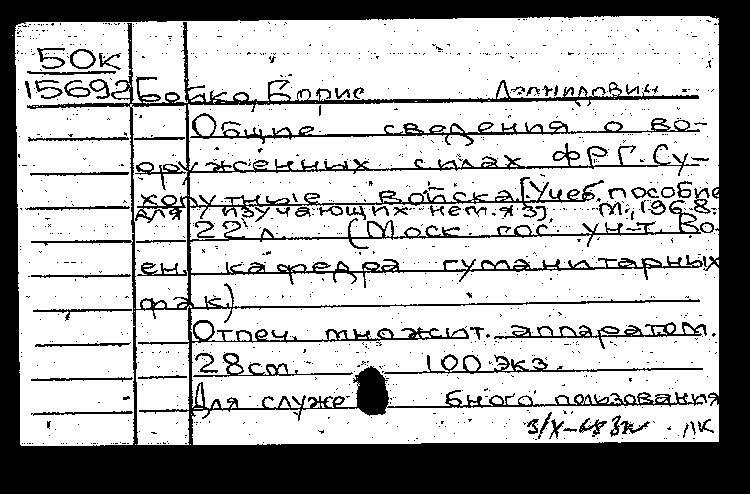 50к
15692 Бойко, Борис Леонидович
Общие сведения о во-
оруженных силах ФРГ. Су-
хопутные войска. [Учеб. пособие
для изучающих нем. яз]. М., 1968.
22 л. (Моск. гос. ун-т. Во-
ен. кафедра гуманитарных
фак.)
Отпеч. множит. аппаратом.
28 см. 100 экз.
Для служебного пользования